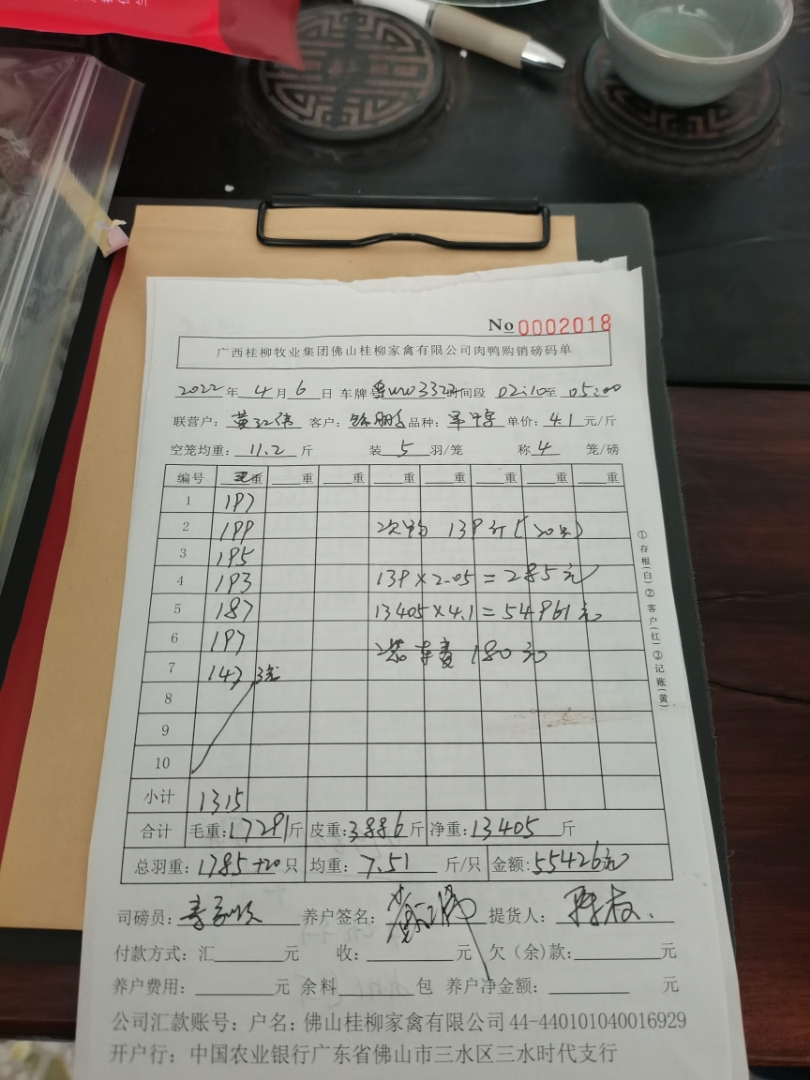 No 0002018
广西桂柳牧业集团佛山桂柳家禽有限公司肉鸭购销磅码单
2022年4月6日 车牌号 粤WW3322 时间段 02:10至05:00
联营户: 黄红伟 客户: 品种: 单价: 4.1 元/斤
空笼均重: 11.2 斤 装 5 羽/笼 称 4 笼/磅
编号 重 重 重 重 重 重 重 重
1 197
2 199 次鸭 139斤(20只)
3 195
4 193 139×2.05=285元
5 187 13405×4.1=54961元
6 197 装车费180元
7 143 3笼
8
9
10
小计 1315
合计 毛重: 17291斤 皮重: 3886斤 净重: 13405斤
总羽重: 1785+20只 均重: 7.51 斤/只 金额: 55426元
司磅员: 养户签名: 提货人:
付款方式: 汇 元 收: 元 欠(余)款: 元
养户费用: 元 余料 包 养户净金额: 元
公司汇款账号: 户名: 佛山桂柳家禽有限公司 44-440101040016929
开户行: 中国农业银行广东省佛山市三水区三水时代支行
①存根(白)②客户(红)③记账(黄)